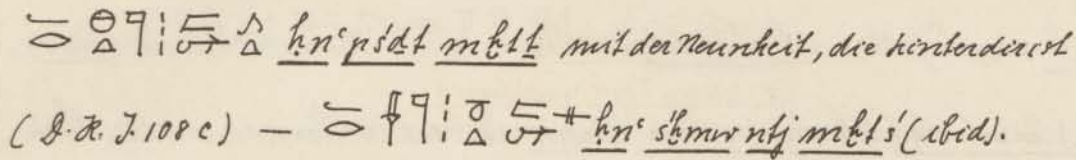 ḥnꜥ pśḏt mḫtt mit der Neunheit, die hinter dir ist
(D. H. J. 108 c) — ḥnꜥ śḫmw ntj mḫtś (ibid).